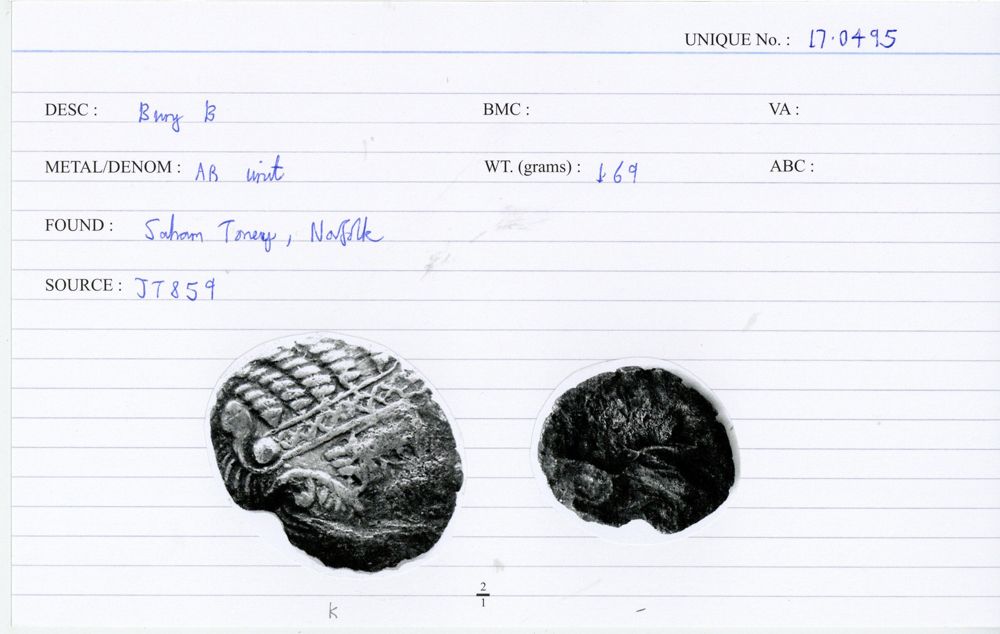 UNIQUE No. : 17.0495
DESC : Bury B BMC : VA :
METAL/DENOM : AR unit WT. (grams) : 1.69 ABC :
FOUND : Saham Toney, Norfolk
SOURCE : JT859
2
1
k -